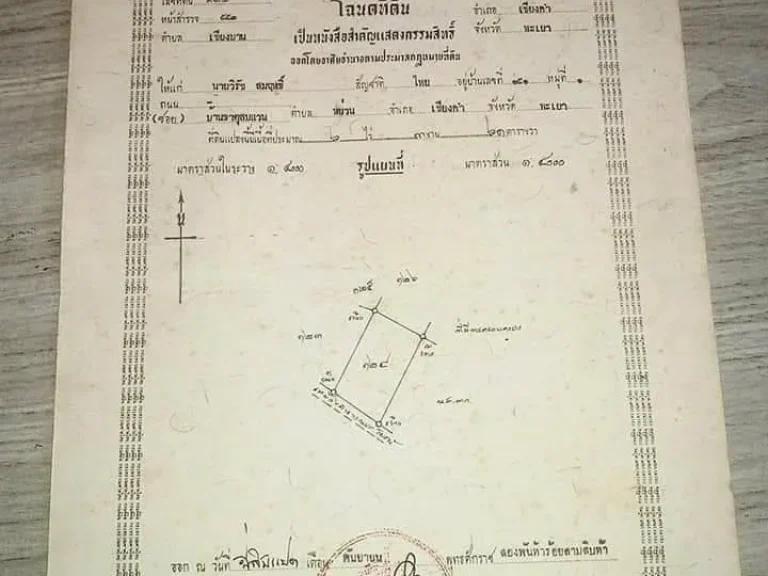 โฉนดที่ดิน
หน้าสำรวจ ๕๕๑
อำเภอ เชียงคำ
ตำบล เชียงบาน
เป็นหนังสือสำคัญแสดงกรรมสิทธิ์
จังหวัด พะเยา
ออกโดยอาศัยอำนาจตามประมวลกฎหมายที่ดิน
ให้แก่ นายวิรัช สมฤทธิ์ สัญชาติ ไทย อยู่บ้านเลขที่ ๑๔๑ หมู่ที่ ๑
ถนน
(ซอย) บ้านธาตุสบแวน ตำบล หย่วน อำเภอ เชียงคำ จังหวัด พะเยา
ที่ดินแปลงนี้มีเนื้อที่ประมาณ ๒ ไร่ ๓ งาน ๒๑ ตารางวา
มาตราส่วนในระวาง ๑:๔๐๐๐ รูปแผนที่ มาตราส่วน ๑:๔๐๐๐
น
๑๒๕ ๑๒๖
๑๒๓
๑๒๔
ออก ณ วันที่ ยี่สิบแปด เดือน กันยายน พุทธศักราช สองพันห้าร้อยสามสิบห้า